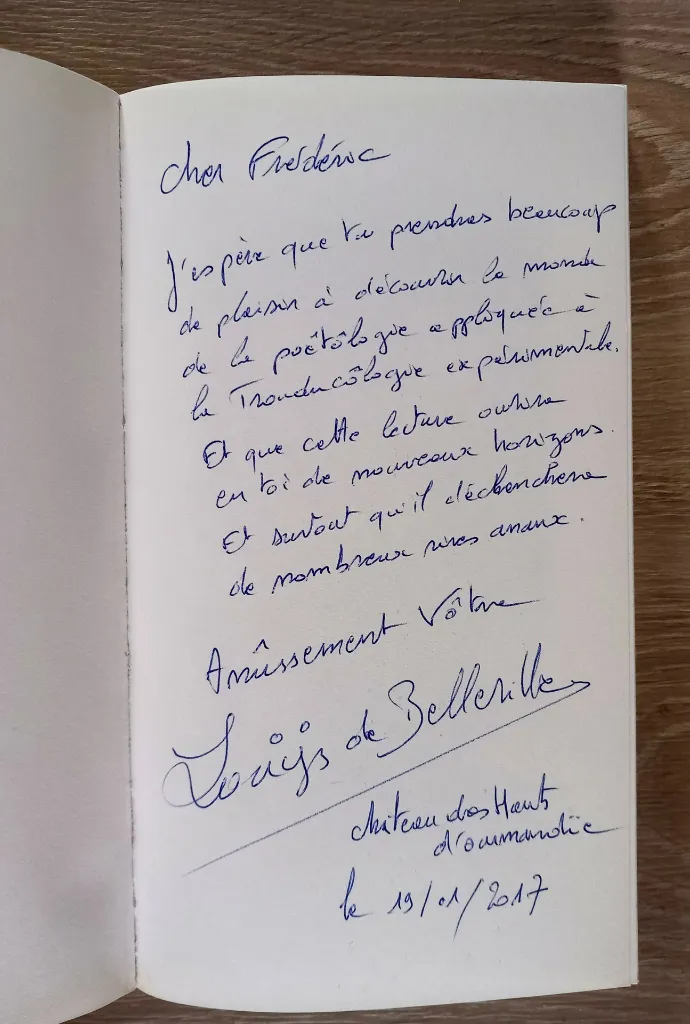 Cher Frédéric
J'espère que tu prendras beaucoup
de plaisir à découvrir le monde
de la poêtôlogie appliquée à
la Trouducôlogie expérimentale.
Et que cette lecture ouvrira
en toi de nouveaux horizons.
Et surtout qu'il déclenchera
de nombreux rires anaux.
Anûssement Vôtre
de Bellesille
Château des Hauts
le 19/01/2017